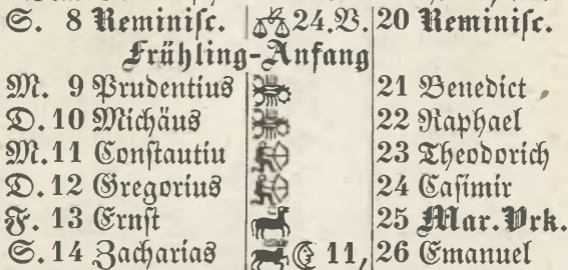 S. 8 Reminiſc. 24. V. 20 Reminiſc.
Frühling-Anfang
M. 9 Prudentius 21 Benedict
D. 10 Michäus 22 Raphael
M. 11 Conſtautiu 23 Theodorich
D. 12 Gregorius 24 Caſimir
F. 13 Ernſt 25 Mar. Vrk.
S. 14 Zacharias 11, 26 Emanuel